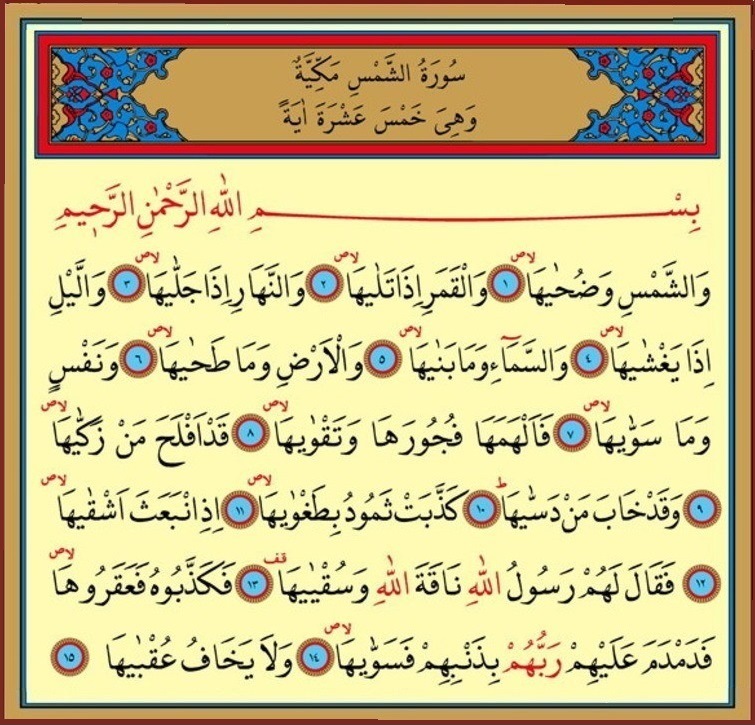 سُورَةُ الشَّمْسِ مَكِّيَّةٌ
وَهِىَ خَمْسَ عَشْرَةَ اٰيَةً
بِسْمِ اللّٰهِ الرَّحْمٰنِ الرَّح۪يمِ
وَالشَّمْسِ وَضُحٰيهَاۙۖ ﴿١﴾ وَالْقَمَرِ اِذَا تَلٰيهَاۙۖ ﴿٢﴾ وَالنَّهَارِ اِذَا جَلّٰيهَاۙۖ ﴿٣﴾ وَالَّيْلِ
اِذَا يَغْشٰيهَاۙۖ ﴿٤﴾ وَالسَّمَٓاءِ وَمَا بَنٰيهَاۙۖ ﴿٥﴾ وَالْاَرْضِ وَمَا طَحٰيهَاۙۖ ﴿٦﴾ وَنَفْسٍ
وَمَا سَوّٰيهَاۙۖ ﴿٧﴾ فَاَلْهَمَهَا فُجُورَهَا وَتَقْوٰيهَاۙۖ ﴿٨﴾ قَدْ اَفْلَحَ مَنْ زَكّٰيهَاۙۖ
﴿٩﴾ وَقَدْ خَابَ مَنْ دَسّٰيهَاۜ ﴿١٠﴾ كَذَّبَتْ ثَمُودُ بِطَغْوٰيهَاۙۖ ﴿١١﴾ اِذِ انْبَعَثَ اَشْقٰيهَاۙۖ
﴿١٢﴾ فَقَالَ لَهُمْ رَسُولُ اللّٰهِ نَاقَةَ اللّٰهِ وَسُقْيٰيهَا قف ﴿١٣﴾ فَكَذَّبُوهُ فَعَقَرُوهَاۙۖ
فَدَمْدَمَ عَلَيْهِمْ رَبُّهُمْ بِذَنْبِهِمْ فَسَوّٰيهَاۙۖ ﴿١٤﴾ وَلَا يَخَافُ عُقْبٰيهَا ﴿١٥﴾